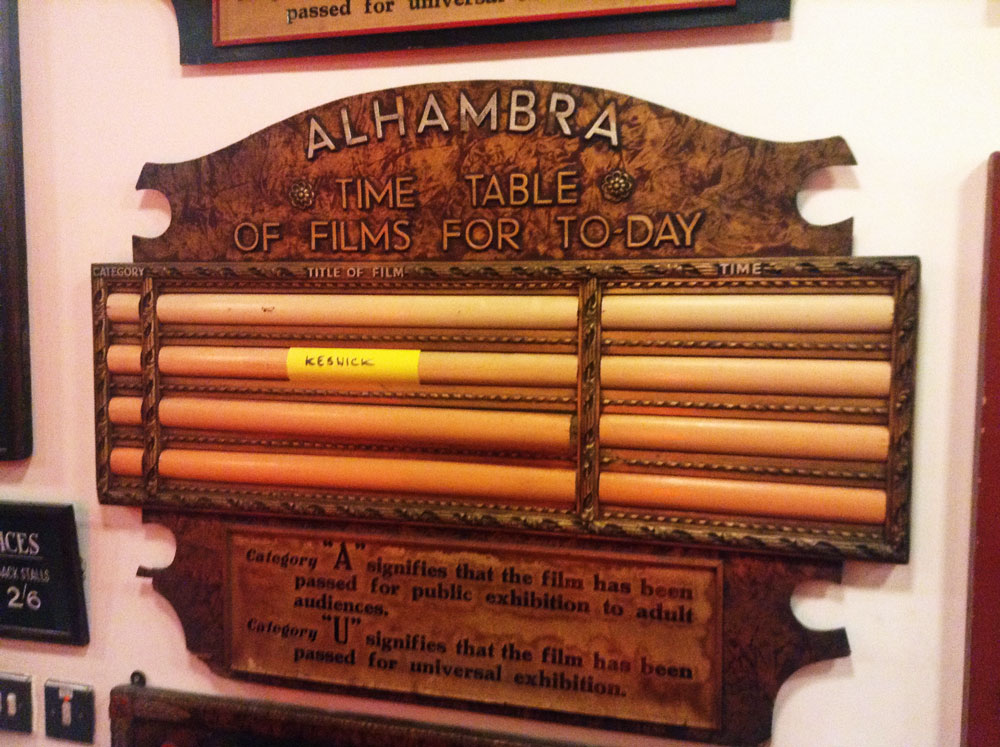 passed for universal
ALHAMBRA
TIME TABLE
OF FILMS FOR TO-DAY
CATEGORY TITLE OF FILM TIME
KESWICK
ICES
ACK STALLS
2/6
Category "A" signifies that the film has been
passed for public exhibition to adult
audiences.
Category "U" signifies that the film has been
passed for universal exhibition.